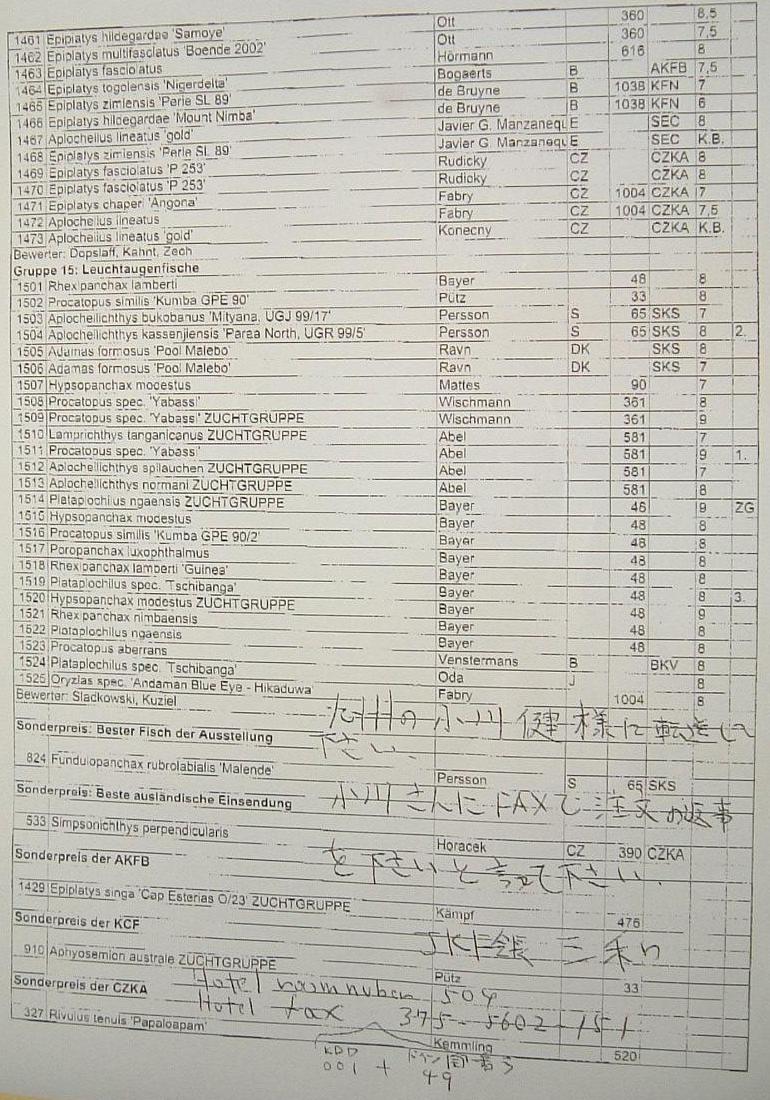 1461 Epiplatys hildegardae 'Samoye' Ott 360 8,5
1462 Epiplatys multifasciatus 'Boende 2002' Ott 360 7,5
1463 Epiplatys fasciolatus Hörmann 616 8
1464 Epiplatys togolensis 'Nigerdelta' Bogaerts B AKFB 7,5
1465 Epiplatys zimiensis 'Perle SL 89' de Bruyne B 1038 KFN 7
1466 Epiplatys hildegardae 'Mount Nimba' de Bruyne B 1038 KFN 6
1467 Aplocheilus lineatus 'gold' Javier G. Manzanequ E SEC 8
1468 Epiplatys zimiensis 'Perle SL 89' Javier G. Manzanequ E SEC K.B.
1469 Epiplatys fasciolatus 'P 253' Rudicky CZ CZKA 8
1470 Epiplatys fasciolatus 'P 253' Rudicky CZ CZKA 8
1471 Epiplatys chaperi 'Angona' Fabry CZ 1004 CZKA 7
1472 Aplocheilus lineatus Fabry CZ 1004 CZKA 7,5
1473 Aplocheilus lineatus 'gold' Konecny CZ CZKA K.B.
Bewerter: Dopslaff, Kahnt, Zech
Gruppe 15: Leuchtaugenfische
1501 Rhexipanchax lamberti Bayer 48 8
1502 Procatopus similis 'Kumba GPE 90' Pütz 33 8
1503 Aplocheilichthys bukobanus 'Mityana, UGJ 99/17' Persson S 65 SKS 7
1504 Aplocheilichthys kassenjiensis 'Paraa North, UGR 99/5' Persson S 65 SKS 8 2.
1505 Adamas formosus 'Pool Malebo' Ravn DK SKS 8
1506 Adamas formosus 'Pool Malebo' Ravn DK SKS 7
1507 Hypsopanchax modestus Mattes 90 7
1508 Procatopus spec. 'Yabassi' Wischmann 361 8
1509 Procatopus spec. 'Yabassi' ZUCHTGRUPPE Wischmann 361 9
1510 Lamprichthys tanganicanus ZUCHTGRUPPE Abel 581 7
1511 Procatopus spec. 'Yabassi' Abel 581 9 1.
1512 Aplocheilichthys spilauchen ZUCHTGRUPPE Abel 581 7
1513 Aplocheilichthys normani ZUCHTGRUPPE Abel 581 8
1514 Plataplochilus ngaensis ZUCHTGRUPPE Bayer 46 9 ZG
1515 Hypsopanchax modestus Bayer 48 8
1516 Procatopus similis 'Kumba GPE 90/2' Bayer 48 8
1517 Poropanchax luxophthalmus Bayer 48 8
1518 Rhexipanchax lamberti 'Guinea' Bayer 48 8
1519 Plataplochilus spec. 'Tschibanga' Bayer 48 8 3.
1520 Hypsopanchax modestus ZUCHTGRUPPE Bayer 48 9
1521 Rhexipanchax nimbaensis Bayer 48 8
1522 Plataplochilus ngaensis Bayer 48 8
1523 Procatopus aberrans Venstermans B BKV 8
1524 Plataplochilus spec. 'Tschibanga' Oda J 8
1525 Oryzias spec. 'Andaman Blue Eye - Hikaduwa' Fabry 1004 8
Bewerter: Sladkowski, Kuziel
の小川 健 様に転送して
Sonderpreis: Bester Fisch der Ausstellung
下さい.
824 Fundulopanchax rubrolabialis 'Malende' Persson S 65 SKS
Sonderpreis: Beste ausländische Einsendung
小川さんに FAXで 注文の返事
533 Simpsonichthys perpendicularis Horacek CZ 390 CZKA
Sonderpreis der AKFB
を下さいと言って下さい.
1429 Epiplatys singa 'Cap Esterias O/23' ZUCHTGRUPPE Kämpf 476
Sonderpreis der KCF
910 Aphyosemion australe ZUCHTGRUPPE Pütz 33
Sonderpreis der CZKA
Hotel room number 504
Hotel fax 375-5602-151
327 Rivulus tenuis 'Papaloapam' Kemmling 520
KDD ドイツ国番号
001 + 49